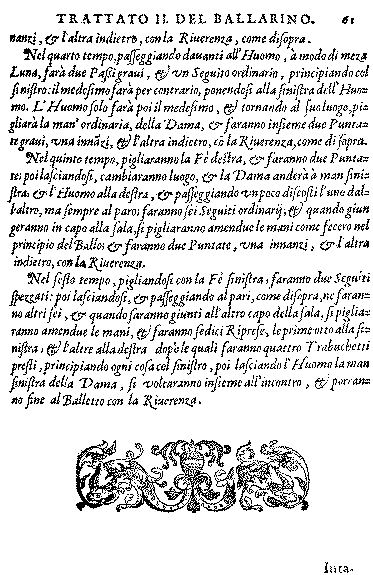 TRATTATO II. DEL BALLARINO. 61
nanzi, & l'altra indietro, con la Riuerenza, come disopra.
Nel quarto tempo, passeggiando dauanti all'Huomo, à modo di meza
Luna, farà due Passi graui, & vn Seguito ordinario, principiando col
sinistro: il medesimo farà per contrario, ponendosi alla sinistra dell'Huo=
mo. L'Huomo solo farà poi il medesimo, & tornando al suo luogo, pi=
gliarà la man' ordinaria, della Dama, & faranno insieme due Punta=
te graui, una innãzi, & l'altra indietro, cõ la Riuerenza, come di sopra.
Nel quinto tempo, pigliaranno la Fè destra, & faranno due Punta=
te: poi lasciandosi, cambiaranno luogo, & la Dama anderà à man sini=
stra: & l'Huomo alla destra, & passeggiando vn poco discosti l'uno dal=
l'altro, ma sempre al paro: faranno sei Seguiti ordinarij, & quando giun
geranno in capo alla sala, si pigliaranno amendue le mani come fecero nel
principio del Ballo: & faranno due Puntate, vna innanzi, & l'altra
indietro, con la Riuerenza.
Nel sesto tempo, pigliandosi con la Fè sinistra, faranno due Seguiti
spezzati: poi lasciandosi, & passeggiando al pari, come disopra, ne faran=
no altri sei, & quando faranno giunti all'altro capo della sala, si piglia=
ranno amendue le mani, & faranno sedici Riprese, le prime otto alla si=
nistra, & l'altre alla destra dopò le quali faranno quattro Trabuchetti
presti, principiando ogni cosa col sinistro, poi lasciando l'Huomo la man
sinistra della Dama, si voltaranno insieme all'incontro, & porran=
no fine al Balletto con la Riuerenza.
Inta-